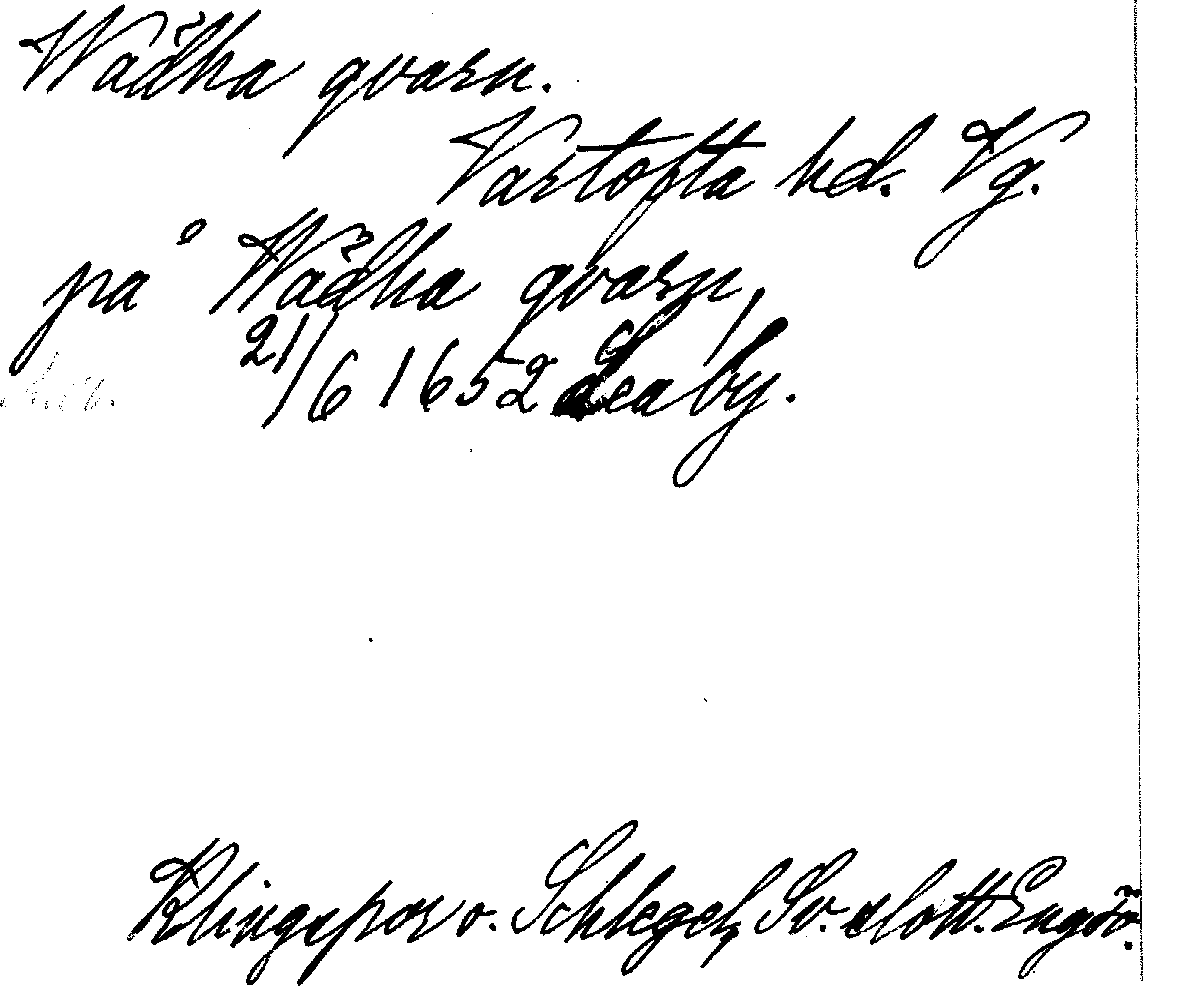 Wädha qvarn.
Vartofta hd. Vg.
på Wädha qvarn,
21/6 1652 Leaby.
Klingspor o. Schlegel, Sv. slott. Engsö.